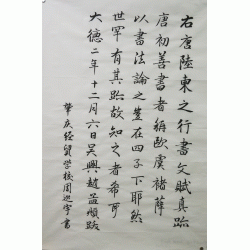 右唐陸柬之行書文賦真跡
唐初善書者稱歐虞褚薛
以書法論之豈在四子下耶然
世罕有其跡故知之者希耳
大德二年十二月六日吳興趙孟頫跋
肇慶經貿學校周迎宇書